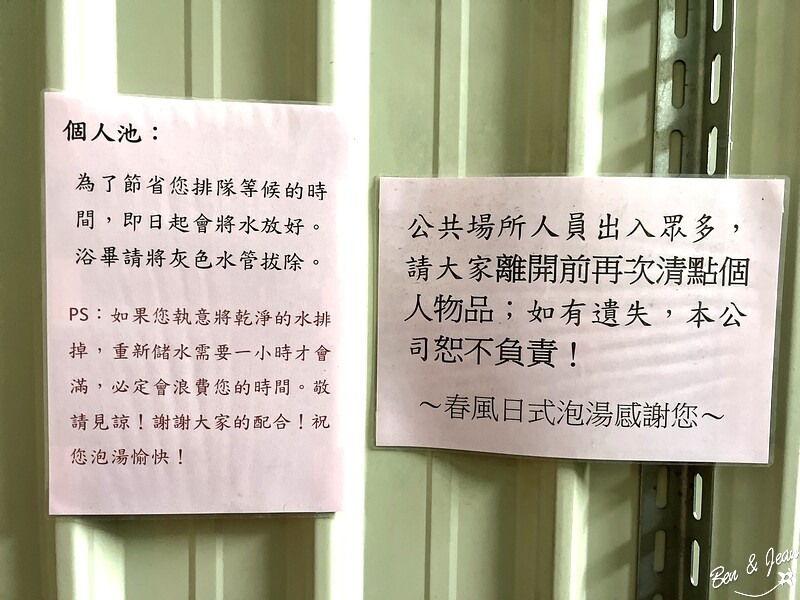 個人池：
為了節省您排隊等候的時
間，即日起會將水放好。
浴畢請將灰色水管拔除。
PS：如果您執意將乾淨的水排
掉，重新儲水需要一小時才會
滿，必定會浪費您的時間。敬
請見諒！謝謝大家的配合！祝
您泡湯愉快！
公共場所人員出入眾多，
請大家離開前再次清點個
人物品；如有遺失，本公
司恕不負責！
～春風日式泡湯感謝您～
Ben & Jean